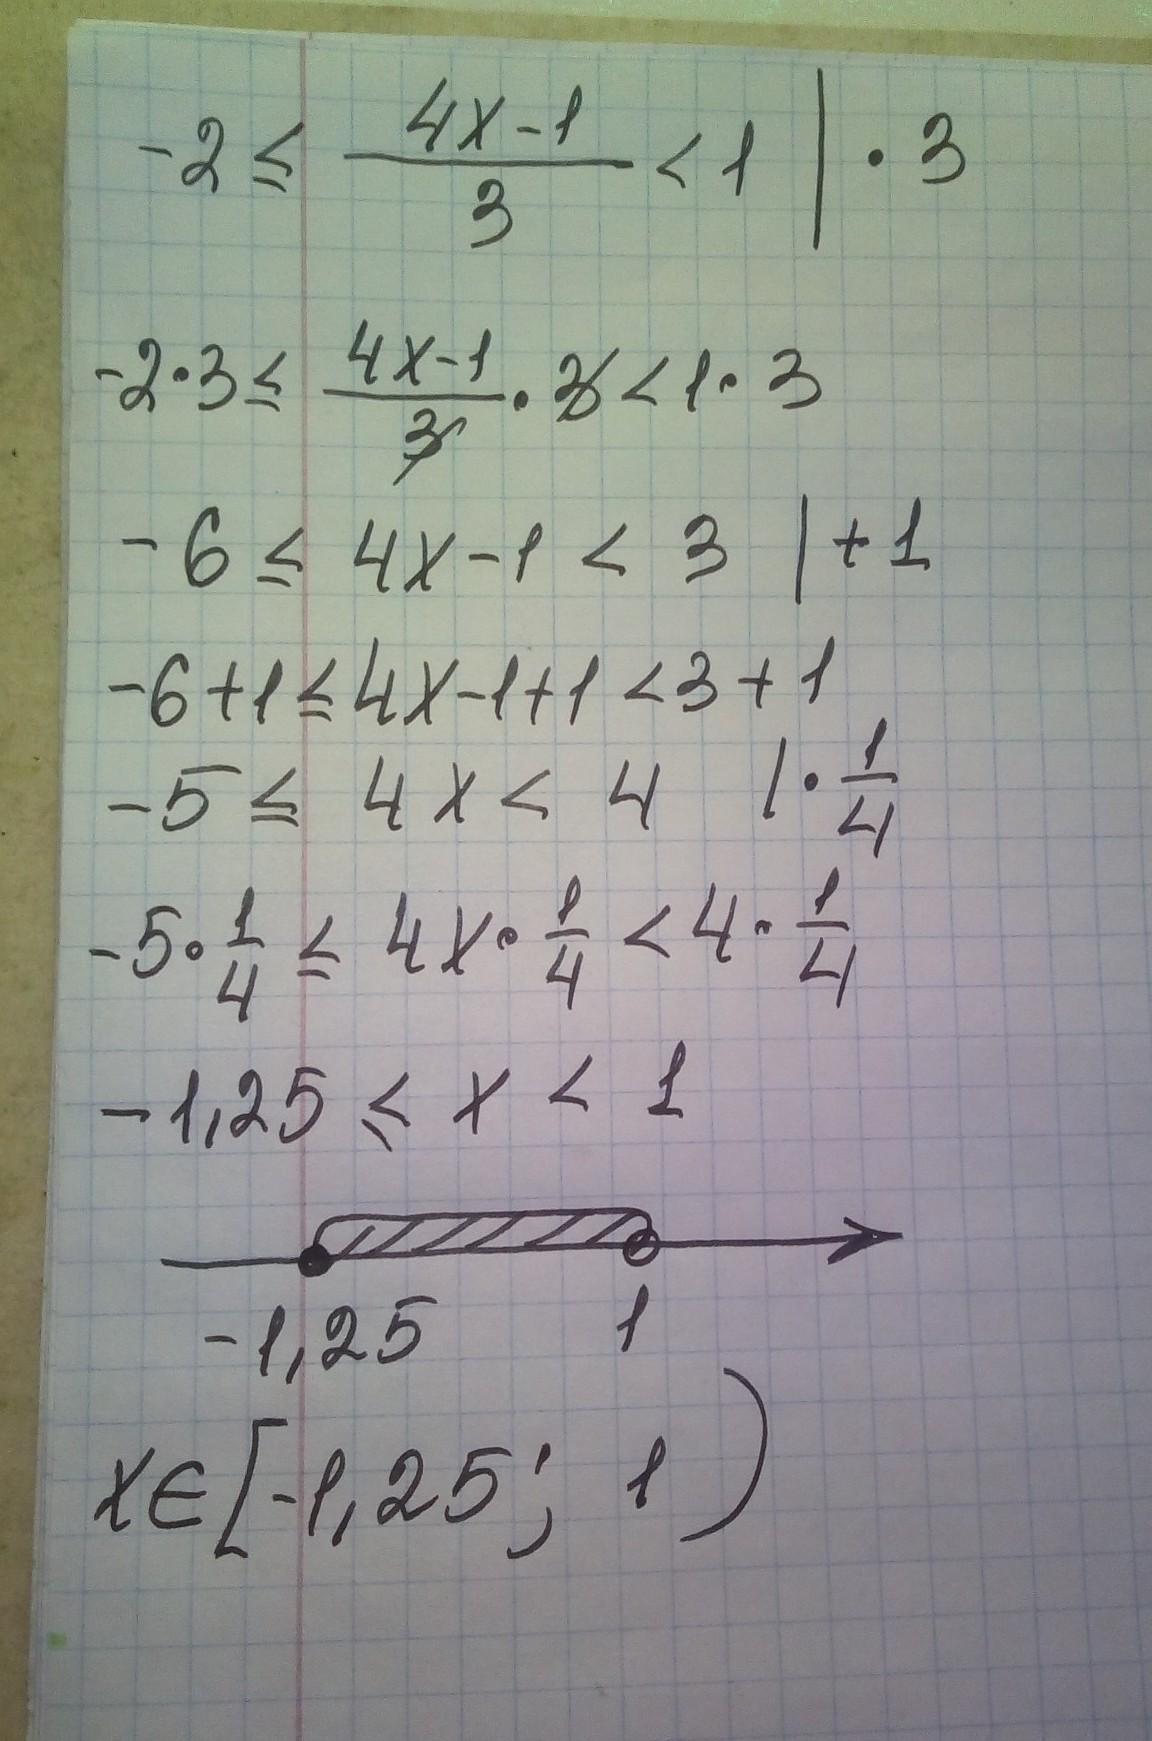 -2 ≤ (4x-1)/3 < 1 | · 3
-2·3 ≤ (4x-1)/3 · 3 < 1 · 3
-6 ≤ 4x-1 < 3 | +1
-6+1 ≤ 4x-1+1 < 3+1
-5 ≤ 4x < 4 | · 1/4
-5 · 1/4 ≤ 4x · 1/4 < 4 · 1/4
-1,25 ≤ x < 1
-1,25 1
x∈[-1,25; 1)